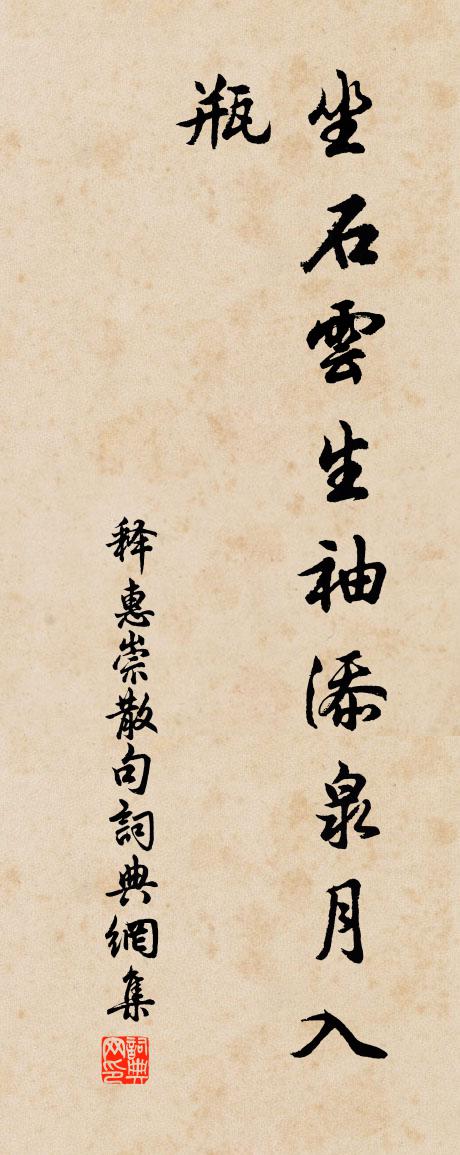 坐石雲生袖添泉月入
瓶
释惠崇散句詞典網集
詞典网印